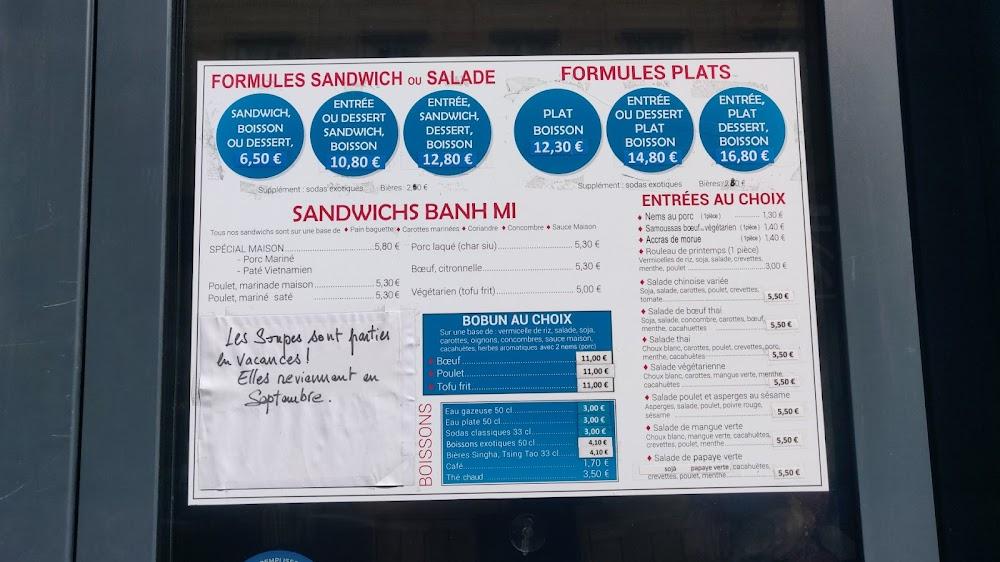 FORMULES SANDWICH ou SALADE
SANDWICH,
BOISSON
OU DESSERT,
6,50 €
ENTRÉE
OU DESSERT
SANDWICH,
BOISSON
10,80 €
ENTRÉE,
SANDWICH,
DESSERT,
BOISSON
12,80 €
Supplément : sodas exotiques Bières
FORMULES PLATS
PLAT
BOISSON
12,30 €
ENTRÉE
OU DESSERT
PLAT
BOISSON
14,80 €
ENTRÉE,
PLAT
DESSERT,
BOISSON
16,80 €
Supplément : sodas exotiques Bières
SANDWICHS BANH MI
Tous nos sandwichs sont sur une base de ♦ Pain baguette ♦ Carottes marinées ♦ Coriandre ♦ Concombre ♦ Sauce Maison
SPÉCIAL MAISON 5,80 €
- Porc Mariné
- Paté Vietnamien
Poulet, marinade maison 5,30 €
Poulet, mariné saté 5,30 €
Porc laqué (char siu) 5,30 €
Bœuf, citronnelle 5,30 €
Végétarien (tofu frit) 5,00 €
Les Soupes sont parties
en vacances !
Elles reviennent en
Septembre.
BOBUN AU CHOIX
Sur une base de : vermicelle de riz, salade, soja,
carottes, oignons, concombres, sauce maison,
cacahuètes, herbes aromatiques avec 2 nems (porc)
♦ Bœuf 11,00 €
♦ Poulet 11,00 €
♦ Tofu frit 11,00 €
BOISSONS
Eau gazeuse 50 cl 3,00 €
Eau plate 50 cl 3,00 €
Sodas classiques 33 cl 3,00 €
Boissons exotiques 50 cl 4,10 €
Bières Singha, Tsing Tao 33 cl 4,10 €
Café 1,70 €
Thé chaud 3,50 €
ENTRÉES AU CHOIX
♦ Nems au porc (1pièce) 1,30 €
♦ Samoussas bœuf ou végétarien (1pièce) 1,40 €
♦ Accras de morue (1pièce) 1,40 €
♦ Rouleau de printemps (1 pièce)
Vermicelles de riz, soja, salade, crevettes,
menthe, poulet 3,00 €
♦ Salade chinoise variée
Soja, salade, carottes, poulet, crevettes,
tomate 5,50 €
♦ Salade de bœuf thai
Soja, salade, concombre, carottes, bœuf,
menthe, cacahuettes 5,50 €
♦ Salade thai
Choux blanc, carottes, poulet, crevettes, porc,
menthe, cacahuètes 5,50 €
♦ Salade végétarienne
Choux blanc, carottes, mangue verte, menthe,
cacahuètes 5,50 €
♦ Salade poulet et asperges au sésame
Asperges, salade, poulet, poivre rouge,
sésame 5,50 €
♦ Salade de mangue verte
Choux blanc, mangue verte, cacahuètes,
crevettes, poulet, menthe 5,50 €
♦ Salade de papaye verte
soja papaye verte, cacahuètes,
crevettes, poulet, menthe 5,50 €